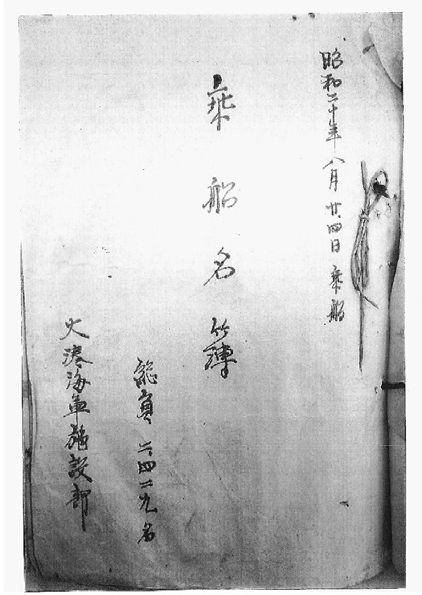 昭和二十年八月廿四日乗船
乗船名簿
総員 二四二九名
大湊海軍施設部